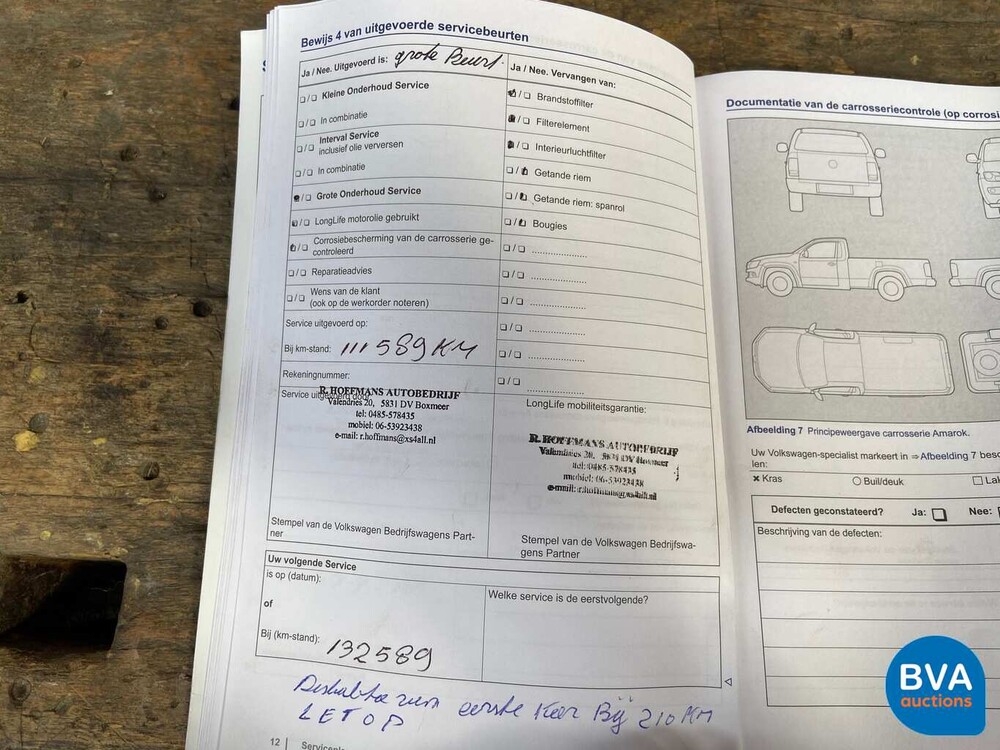 Bewijs 4 van uitgevoerde servicebeurten
Ja / Nee. Uitgevoerd is: grote Beurt.
Kleine Onderhoud Service
In combinatie
Interval Service
inclusief olie verversen
In combinatie
Grote Onderhoud Service
LongLife motorolie gebruikt
Corrosiebescherming van de carrosserie ge-
controleerd
Reparatieadvies
Wens van de klant
(ook op de werkorder noteren)
Service uitgevoerd op:
Bij km-stand: 111589 KM
Rekeningnummer:
Service uitgevoerd door:
R. HOFFMANS AUTOBEDRIJF
Valendries 20, 5831 DV Boxmeer
tel: 0485-578435
mobiel: 06-53923438
e-mail: r.hoffmans@xs4all.nl
Stempel van de Volkswagen Bedrijfswagens Part-
ner
Ja / Nee. Vervangen van:
Brandstoffilter
Filterelement
Interieurluchtfilter
Getande riem
Getande riem: spanrol
Bougies
LongLife mobiliteitsgarantie:
R. HOFFMANS AUTOBEDRIJF
Valendries 20, 5831 DV Boxmeer
tel: 0485-578435
mobiel: 06-53923438
e-mail: r.hoffmans@xs4all.nl
Stempel van de Volkswagen Bedrijfswa-
gens Partner
Uw volgende Service
is op (datum):
of
Bij (km-stand): 132589
Welke service is de eerstvolgende?
eerste keer Bij 210 KM
LETOP
12
Documentatie van de carrosseriecontrole (op corrosi
Afbeelding 7 Principeweergave carrosserie Amarok.
Uw Volkswagen-specialist markeert in ⇒ Afbeelding 7 besc
len:
x Kras
Buil/deuk
Lak
Defecten geconstateerd? Ja: Nee:
Beschrijving van de defecten:
BVA
auctions